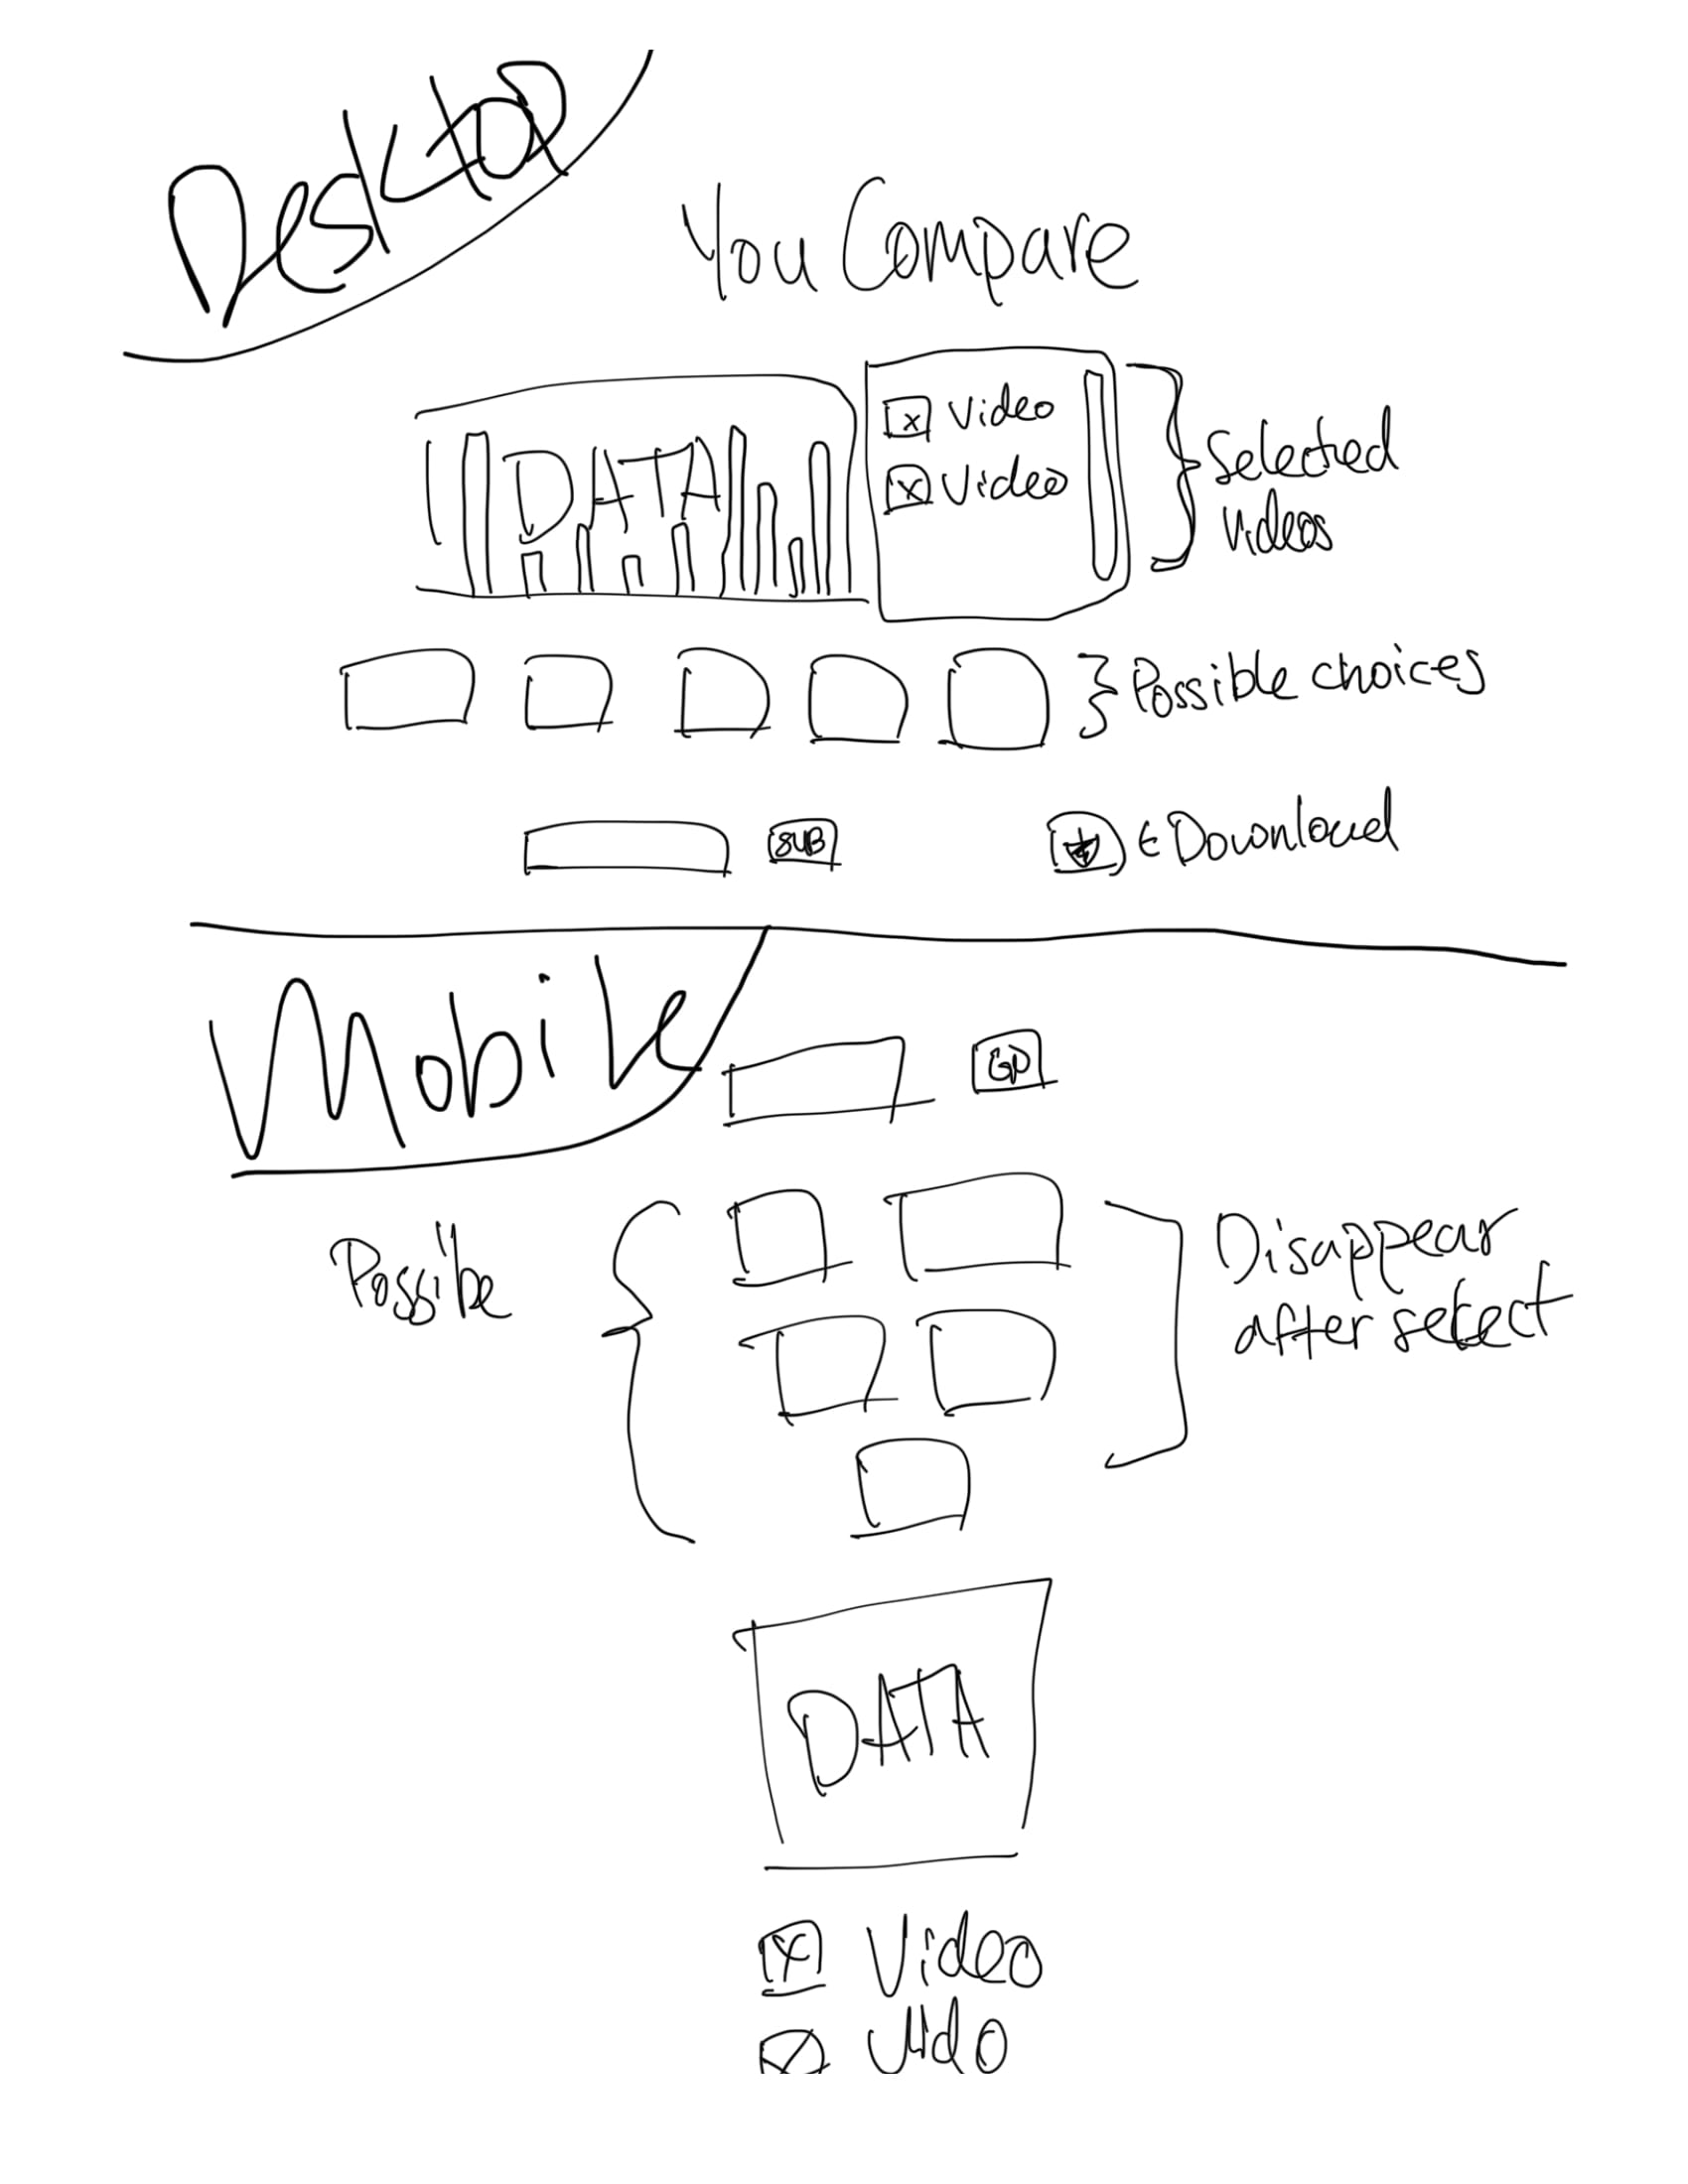 Desktop
You Compare
DATA
x Video
x Video
Selected
Videos
Possible choices
SUB
Download
Mobile
GO
Possible
Disappear
after select
DATA
x Video
Vido